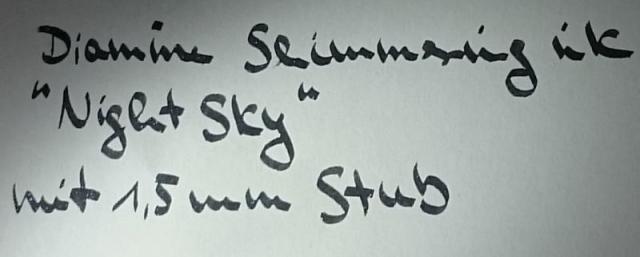 Diamine Shimmering ink
"Night Sky"
mit 1,5 mm Stub